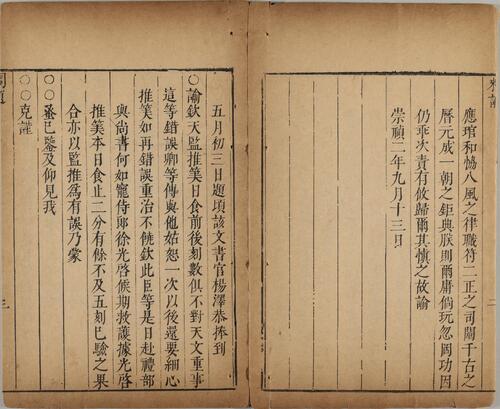 應琯和恊八風之律職符二正之司闡千古之
曆元成一朝之鉅典朕則爾庸倘玩忽罔功因
仍乖次責有攸歸爾其慎之故諭
崇禎二年九月十三日
五月初三日題項該文書官楊澤恭捧到
○諭欽天監推筭日食前後刻數俱不對天文重事
這等錯誤卿等傳與他姑恕一次以後還要細心
推筭如再錯誤重治不饒欽此臣等是日赴禮部
與尚書何如寵侍郎徐光啓候期救護據光啓
推筭本日食止二分有餘不及五刻已驗之果
合亦以監推爲有誤乃蒙
○○已鑒及仰見我
○○克謹
三